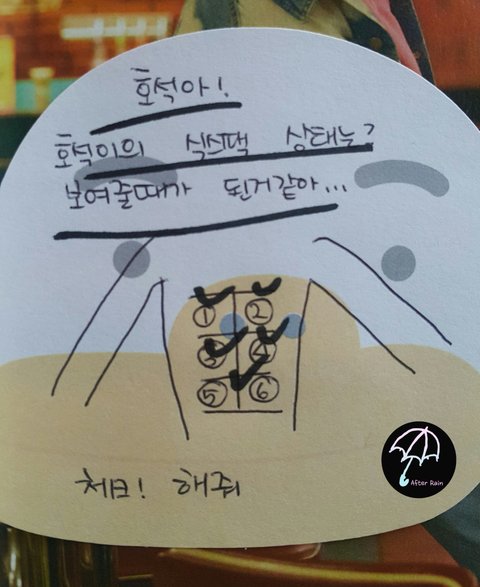 호석아!
호석이의 식스팩 상태는?
보여줄때가 된거같아...
① ②
③ ④
⑤ ⑥
체크! 해줘
After Rain